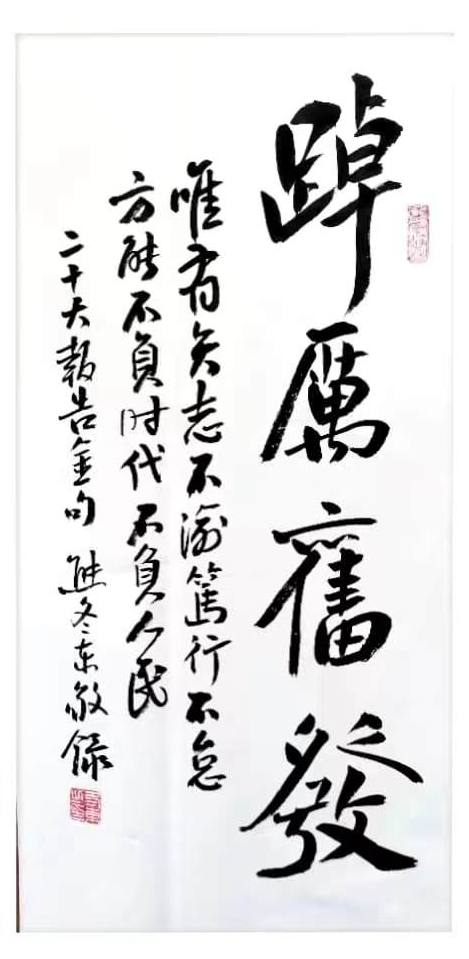 踔厲奮發
唯有矢志不渝篤行不怠
方能不負时代不負人民
二十大報告金句 熊冬东敬録